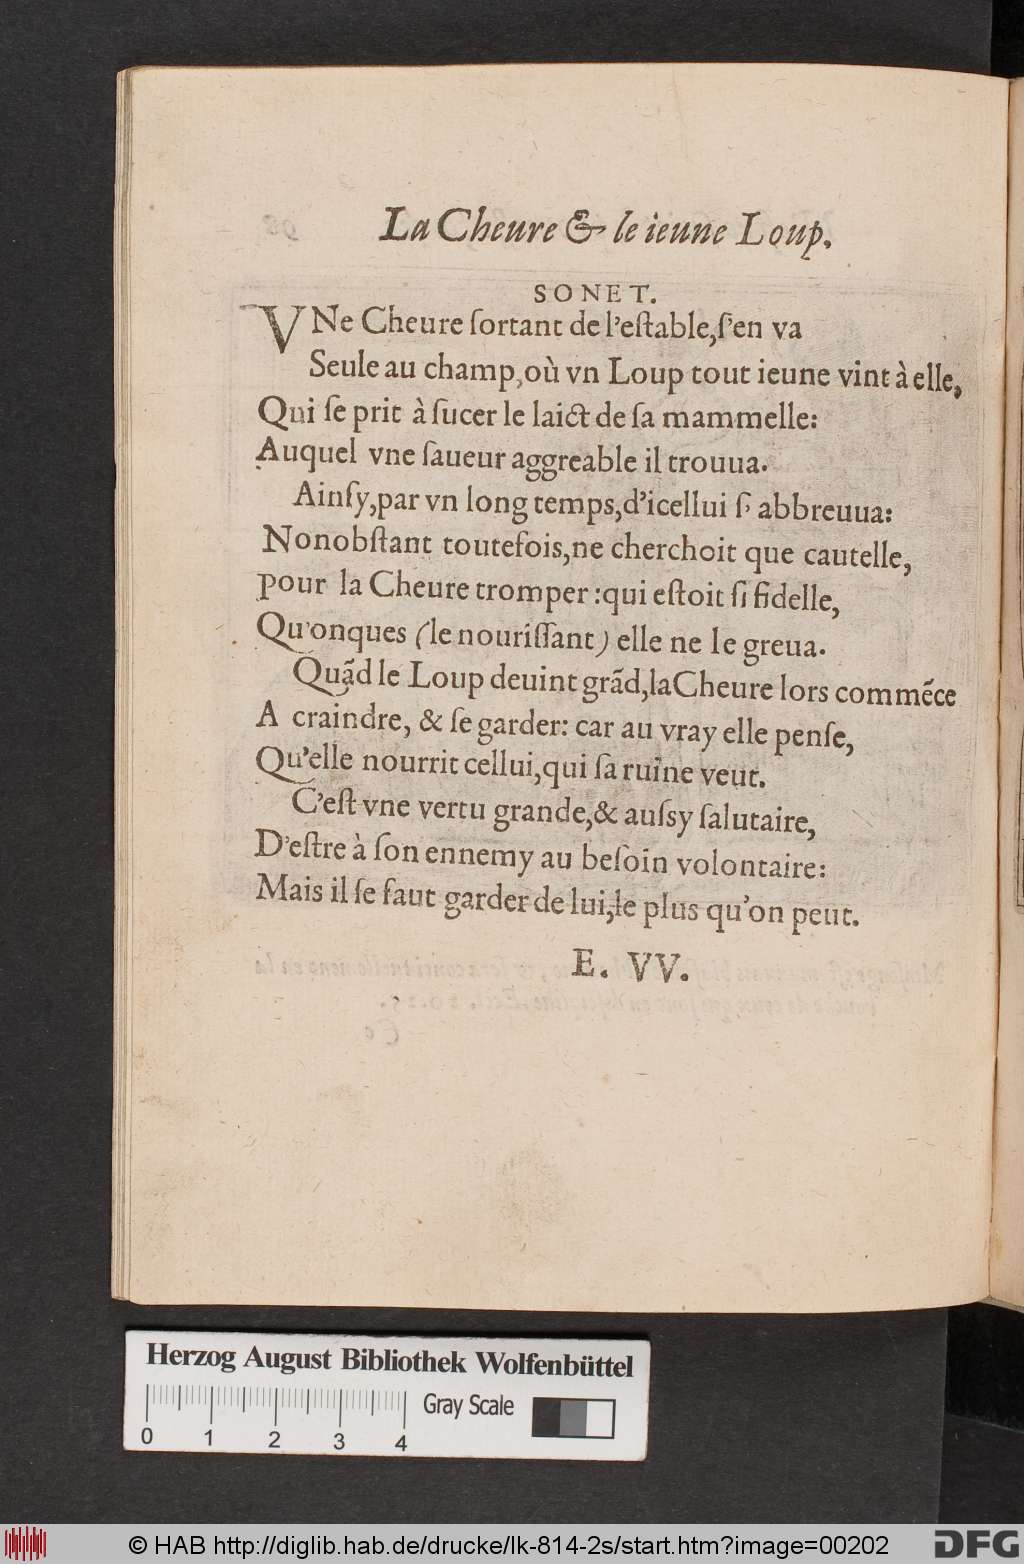 La Cheure & le ieune Loup.
SONET.
VNe Cheure ſortant de l'eſtable, ſ'en va
Seule au champ, où vn Loup tout ieune vint à elle,
Qui ſe prit à ſucer le laict de ſa mammelle:
Auquel vne ſaueur aggreable il trouua.
Ainſy, par vn long temps, d'icellui ſ' abbreuua:
Nonobſtant toutefois, ne cherchoit que cautelle,
pour la Cheure tromper: qui eſtoit ſi fidelle,
Qu'onques (le nouriſſant) elle ne le greua.
Quãd le Loup deuint grãd, la Cheure lors commẽce
A craindre, & ſe garder: car au vray elle penſe,
Qu'elle nourrit cellui, qui ſa ruïne veut.
C'eſt vne vertu grande, & auſsy ſalutaire,
D'eſtre à ſon ennemy au beſoin volontaire:
Mais il ſe faut garder de lui, le plus qu'on peut.
E. VV.
Herzog August Bibliothek Wolfenbüttel
Gray Scale
0 1 2 3 4
© HAB http://diglib.hab.de/drucke/lk-814-2s/start.htm?image=00202
DFG